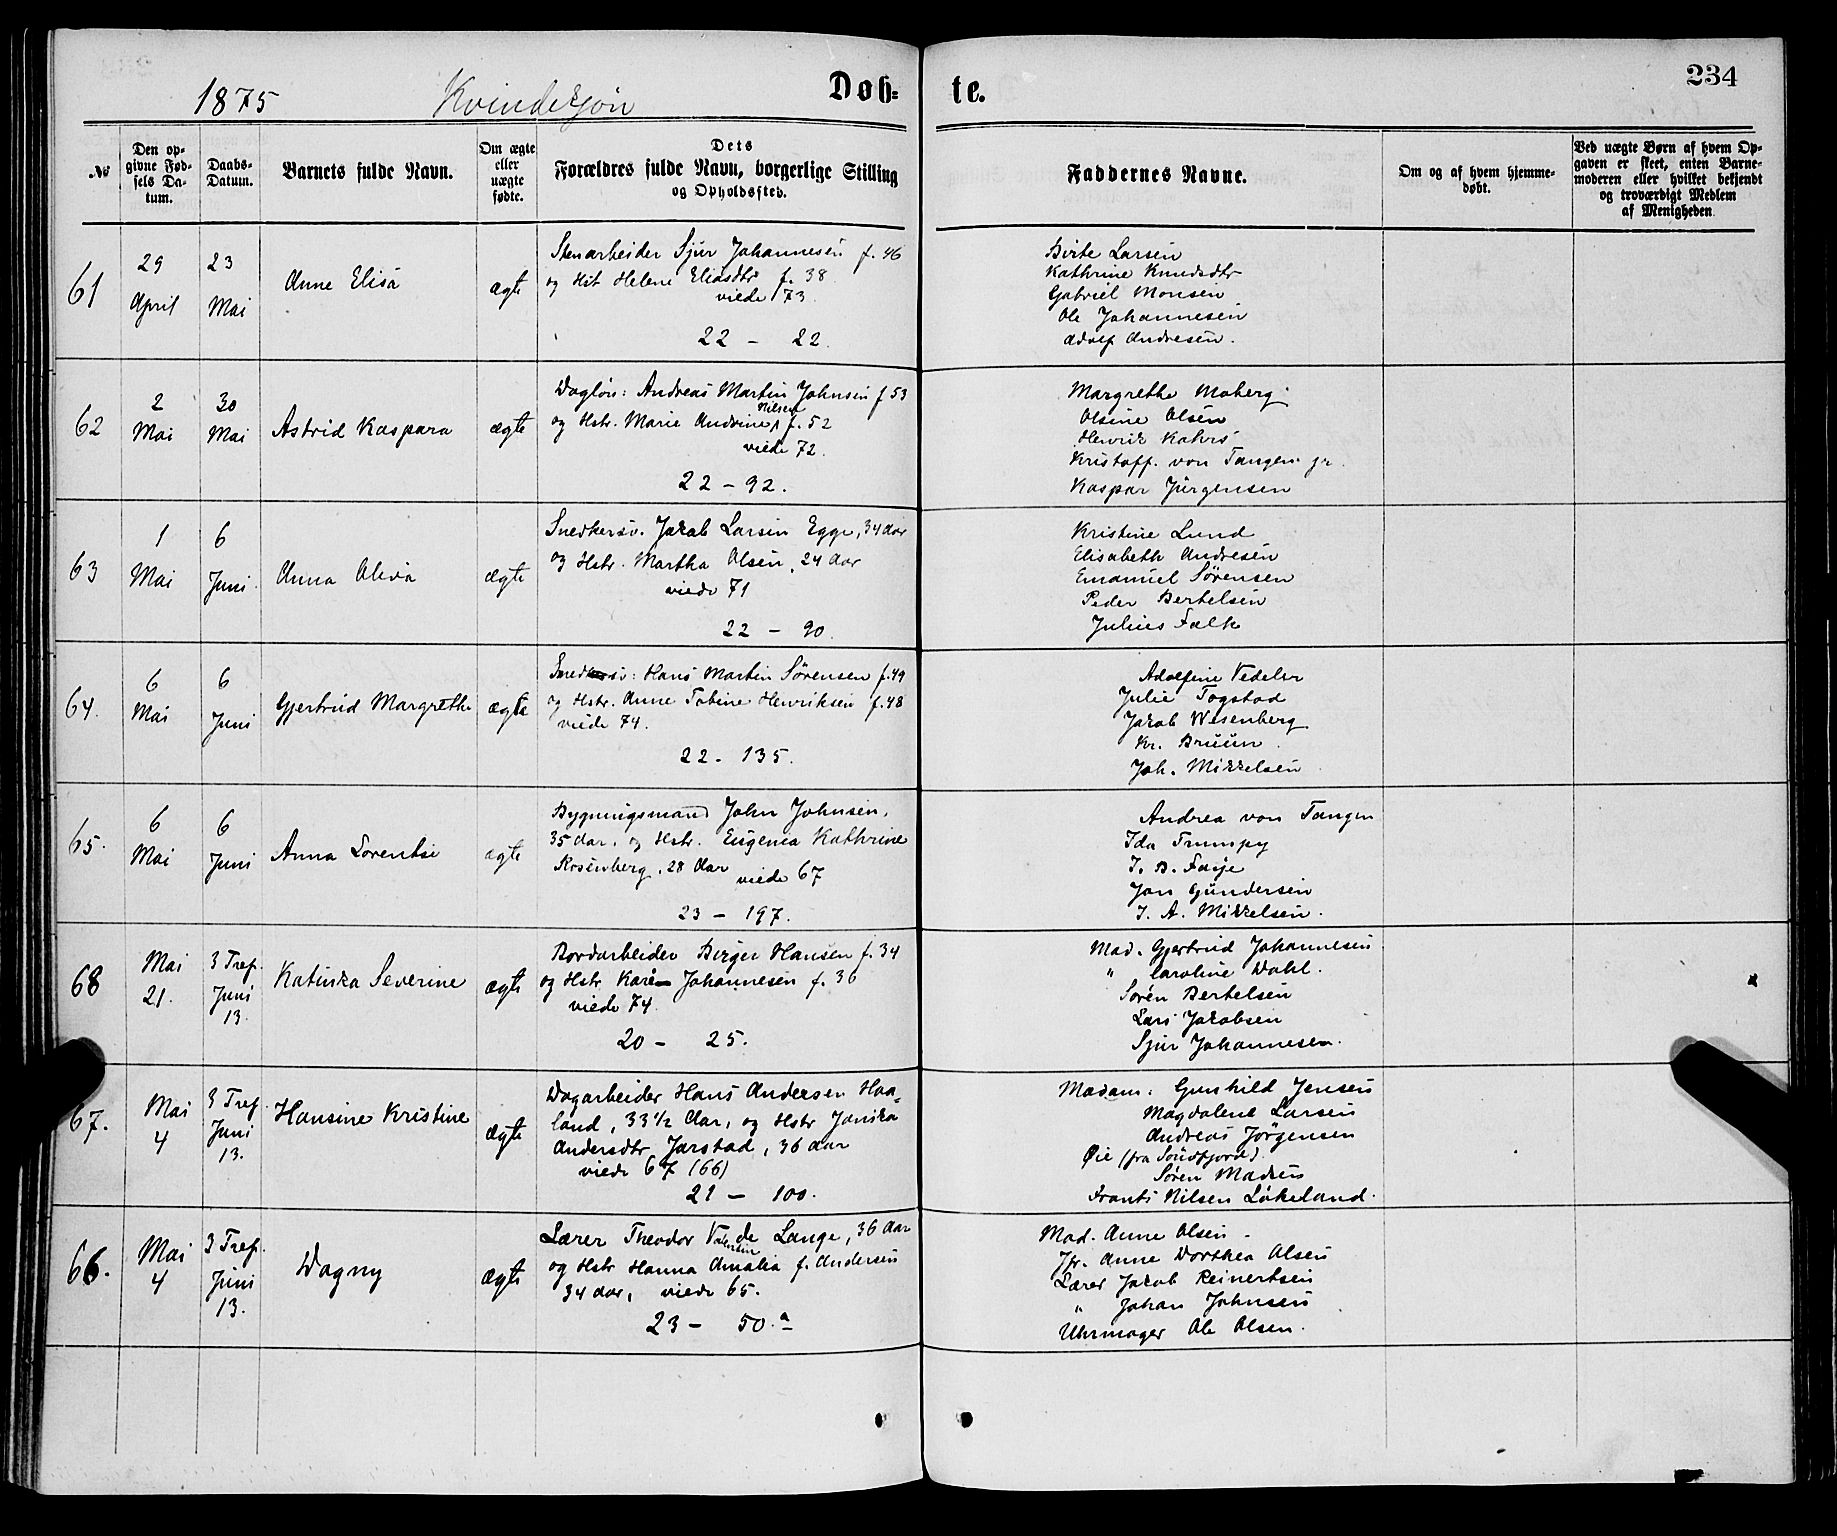 1875 Kvindekjön Døb-
te. 234
№
Den op-
givne Fød-
sels Da-
tum.
Daabs-
Datum.
Barnets fulde Navn.
Om ægte
eller
uægte
fødte.
Dets
Forældres fulde Navn, borgerlige Stilling
og Opholdssted.
Faddernes Navne.
Om og af hvem hjemme-
døbt.
Ved uægte Børn af hvem Op-
gaven er skeet, enten Barne-
moderen eller hvilket bekjendt
og troværdigt Medlem
af Menigheden.
61
29
April
23
Mai
Anne Elisa
ægte
Stenarbeider Sjur Johannesen f. 46
og Hst Helene Eliasdtr f. 38
viede 73.
22 - 22.
Birte Larsen
Kathrine Knudsdtr
Gabriel Monsen
Ole Johannesen
Adolf Andresen.
62
2
Mai
30
Mai
Astrid Kaspara
ægte
Dagløn: Andreas Martin Johnsen f 53
og Hstr. Marie Andrine Nilsen f. 52
viede 72.
22 - 92.
Margrethe Moberg
Olsine Olsen
Henrik Kahrs
Kristoff. von Tangen jr.
Kaspar Jürgensen
63
1
Mai
6
Juni.
Anna Oliva
ægte
Snedkersv. Jakob Larsen Egge, 34 Aar
og Hstr. Martha Olsen, 24 Aar
viede 71
22 - 90.
Kristine Lund
Elisabeth Andresen
Emanuel Sørensen
Peder Bertelsen
Julius Falk
64.
6
Mai
6
Juni
Gjertrud Margrethe
ægte
Snedkersv: Hans Martin Sørensen f. 49
og Hstr. Anne Tobine Henriksen f. 48
viede 74.
22 - 135.
Adolfine Vedeler
Julie Fogstad
Jakob Wesenberg
Kr. Bruun.
Joh. Mikkelsen
65.
6
Mai
6
Juni
Anna Lorentse
ægte
Bygningsmand John Johnsen,
35 Aar, og Hstr. Eugenia Kathrine
Rosenberg, 28 Aar viede 67
23 - 197.
Andrea von Tangen
Ida Trumpy
J. B. Faije
Jan Gundersen
J. A. Mikkelsen.
68
Mai
21.
3 Tref.
Juni
13.
Katinka Severine
ægte
Bordarbeider Birger Hansen f. 34
og Hstr Karen Johannesen f. 36
viede 74.
20 - 25.
Mad. Gjertrud Johannesen
" Caroline Dahl.
Søren Bertelsen
Lars Jakobsen
Sjur Johannesen.
67.
Mai
4
3 Tref.
Juni
13.
Hansine Kristine
ægte
Dagarbeider Hans Andersen Haa-
land, 33 1/2 Aar, og Hstr Janika
Andersdtr Jarstad, 36 Aar
viede 67 (66)
21 - 100.
Madam: Gunhild Jensen
Magdalene Larsen
Andreas Jørgensen
Øie (fra Søndfjord)
Søren Madsen
Frants Nilsen Løkeland.
66.
Mai
4
3 Tref.
Juni
13.
Dagny
ægte
Lærer Theodor Valentin de Lange, 36 Aar
og Hstr Hanna Amalia f. Andersen
34 Aar, viede 65.
23 - 50.a
Mad. Anne Olsen -
Jfr. Anne Dorthea Olsen
Lærer Jakob Reinertsen
" Johan Johnsen
Uhrmager Ole Olsen.